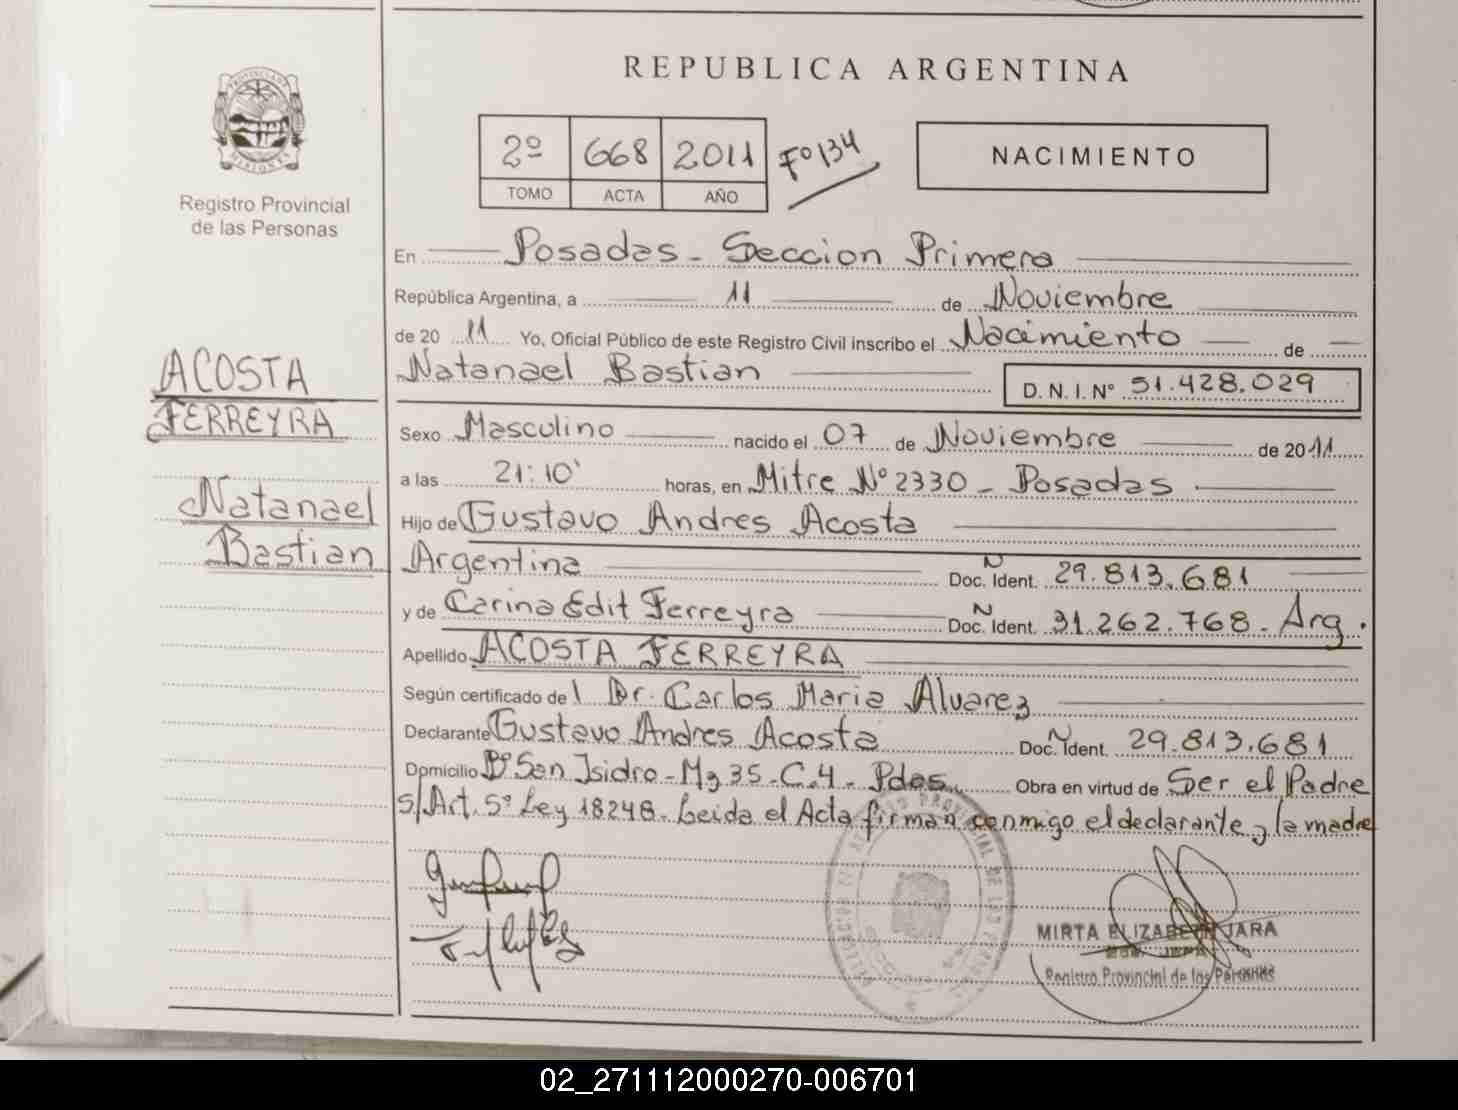 REPUBLICA ARGENTINA
PROVINCIA DE
MISIONES
Registro Provincial
de las Personas
2º 668 2011 Fº 134
TOMO ACTA AÑO
NACIMIENTO
ACOSTA
FERREYRA
Natanael
Bastian
En Posadas - Seccion Primera
República Argentina, a 11 de Noviembre
de 20 11 Yo, Oficial Público de este Registro Civil inscribo el Nacimiento de
Natanael Bastian D.N.I. Nº 51.428.029
Sexo Masculino nacido el 07 de Noviembre de 2011
a las 21:10' horas, en Mitre Nº 2330 - Posadas
Hijo de Gustavo Andres Acosta
Argentina Doc. Ident. 29.813.681
y de Carina Edit Ferreyra Doc. Ident. 31.262.768 - Arg.
Apellido ACOSTA FERREYRA
Según certificado de l Dr. Carlos Maria Alvarez
Declarante Gustavo Andres Acosta Doc. Ident. 29.813.681
Domicilio Bº San Isidro - Mz 35 - C.4 - Pdas. Obra en virtud de Ser el Padre
s/Art. 5º Ley 18248. Leida el Acta firman conmigo el declarante y la madre
MIRTA ELIZABETH JARA
Registro Provincial de las Personas
02_271112000270-006701